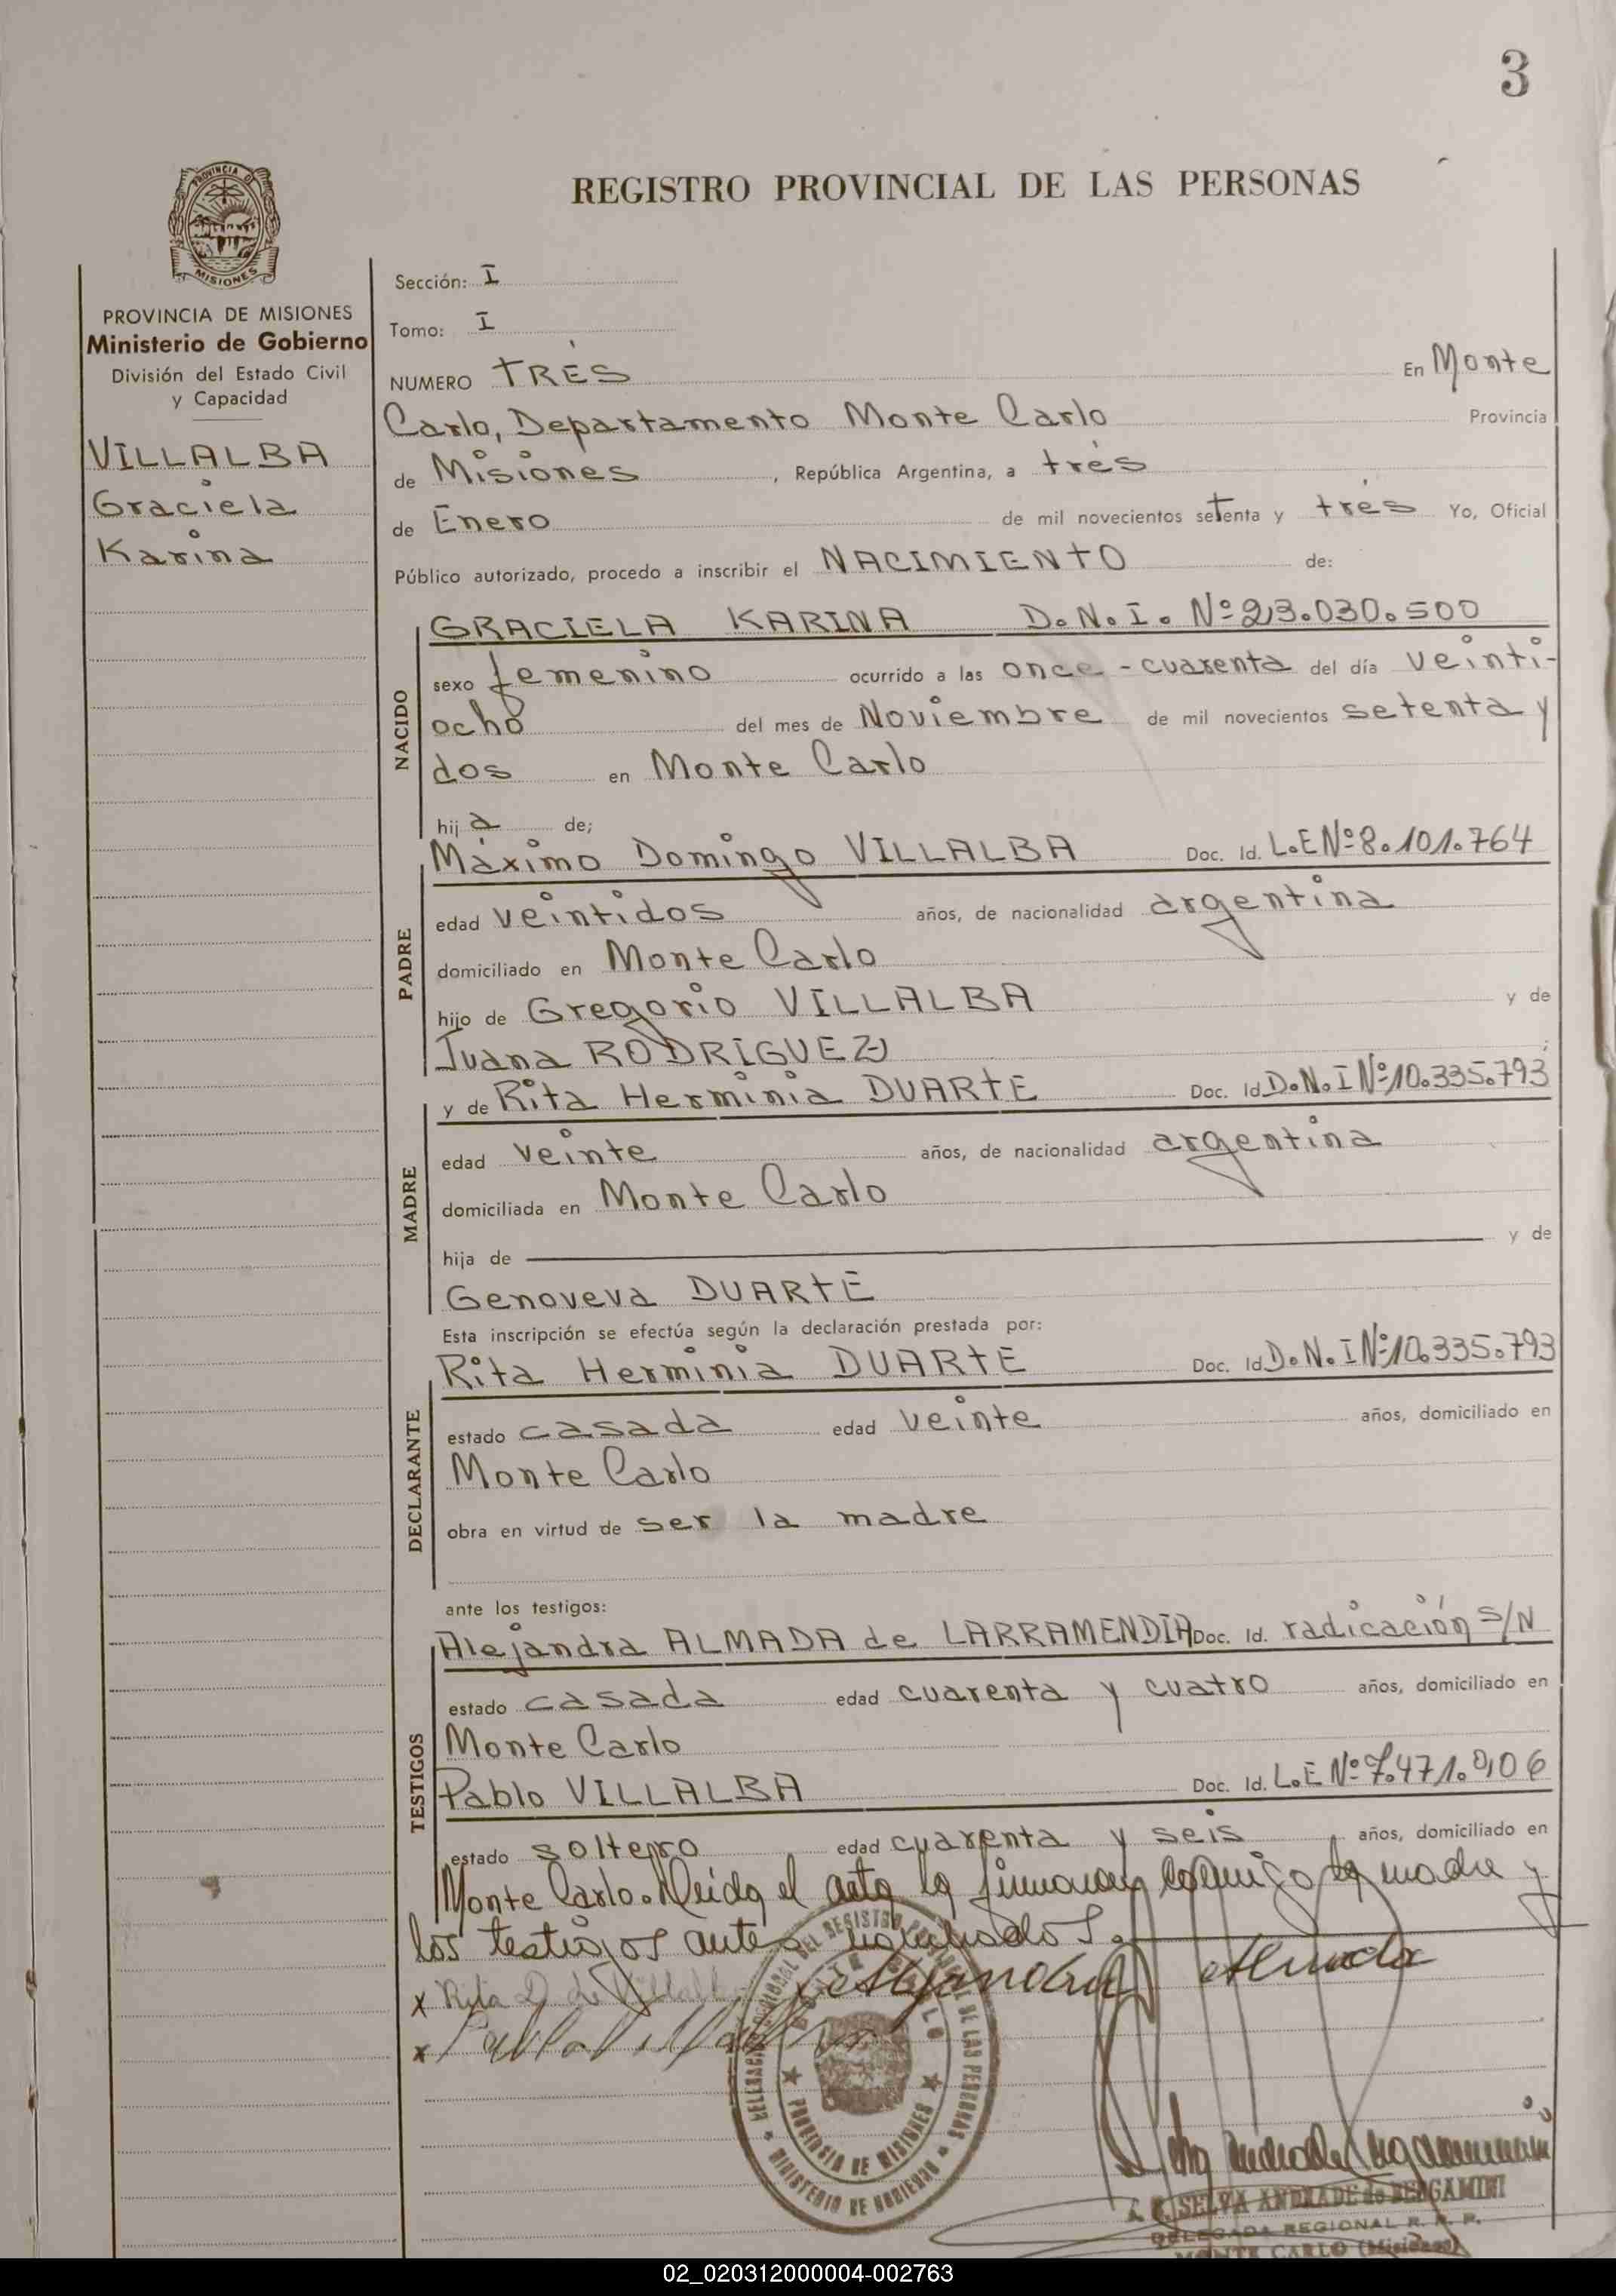 3
REGISTRO PROVINCIAL DE LAS PERSONAS
PROVINCIA DE MISIONES
PROVINCIA DE MISIONES
Ministerio de Gobierno
División del Estado Civil
y Capacidad
VILLALBA
Graciela
Karina
Sección: I
Tomo: I
NUMERO TRES En Monte
Carlo, Departamento Monte Carlo Provincia
de Misiones, República Argentina, a tres
de Enero de mil novecientos setenta y tres Yo, Oficial
Público autorizado, procedo a inscribir el NACIMIENTO de:
NACIDO
GRACIELA KARINA D.N.I. Nº 23.030.500
sexo femenino ocurrido a las once-cuarenta del día veinti-
ocho del mes de Noviembre de mil novecientos setenta y
dos en Monte Carlo
hija de;
PADRE
Máximo Domingo VILLALBA Doc. Id. L.E Nº 8.101.764
edad veintidos años, de nacionalidad argentina
domiciliado en Monte Carlo
hijo de Gregorio VILLALBA y de
Juana RODRIGUEZ
MADRE
y de Rita Herminia DUARTE Doc. Id D.N.I Nº 10.335.793
edad veinte años, de nacionalidad argentina
domiciliada en Monte Carlo
hija de y de
Genoveva DUARTE
Esta inscripción se efectúa según la declaración prestada por:
DECLARANTE
Rita Herminia DUARTE Doc. Id D.N.I Nº 10.335.793
estado casada edad veinte años, domiciliado en
Monte Carlo
obra en virtud de ser la madre
ante los testigos:
TESTIGOS
Alejandra ALMADA de LARRAMENDIA Doc. Id. radicación S/N
estado casada edad cuarenta y cuatro años, domiciliado en
Monte Carlo
Pablo VILLALBA Doc. Id. L.E Nº 7.471.906
estado soltero edad cuarenta y seis años, domiciliado en
Monte Carlo. Leida el acta la firman conmigo la madre y
los testigos antes nombrados.
x Rita D de Villalba x Alejandra Almada
x Pablo Villalba
DELEGACION REGIONAL DEL REGISTRO PROVINCIAL DE LAS PERSONAS
MONTE CARLO
PROVINCIA DE MISIONES
MINISTERIO DE GOBIERNO
SELVA ANDRADE de BERGAMINI
DELEGADA REGIONAL R. P. P.
MONTE CARLO (Misiones)
02_020312000004-002763